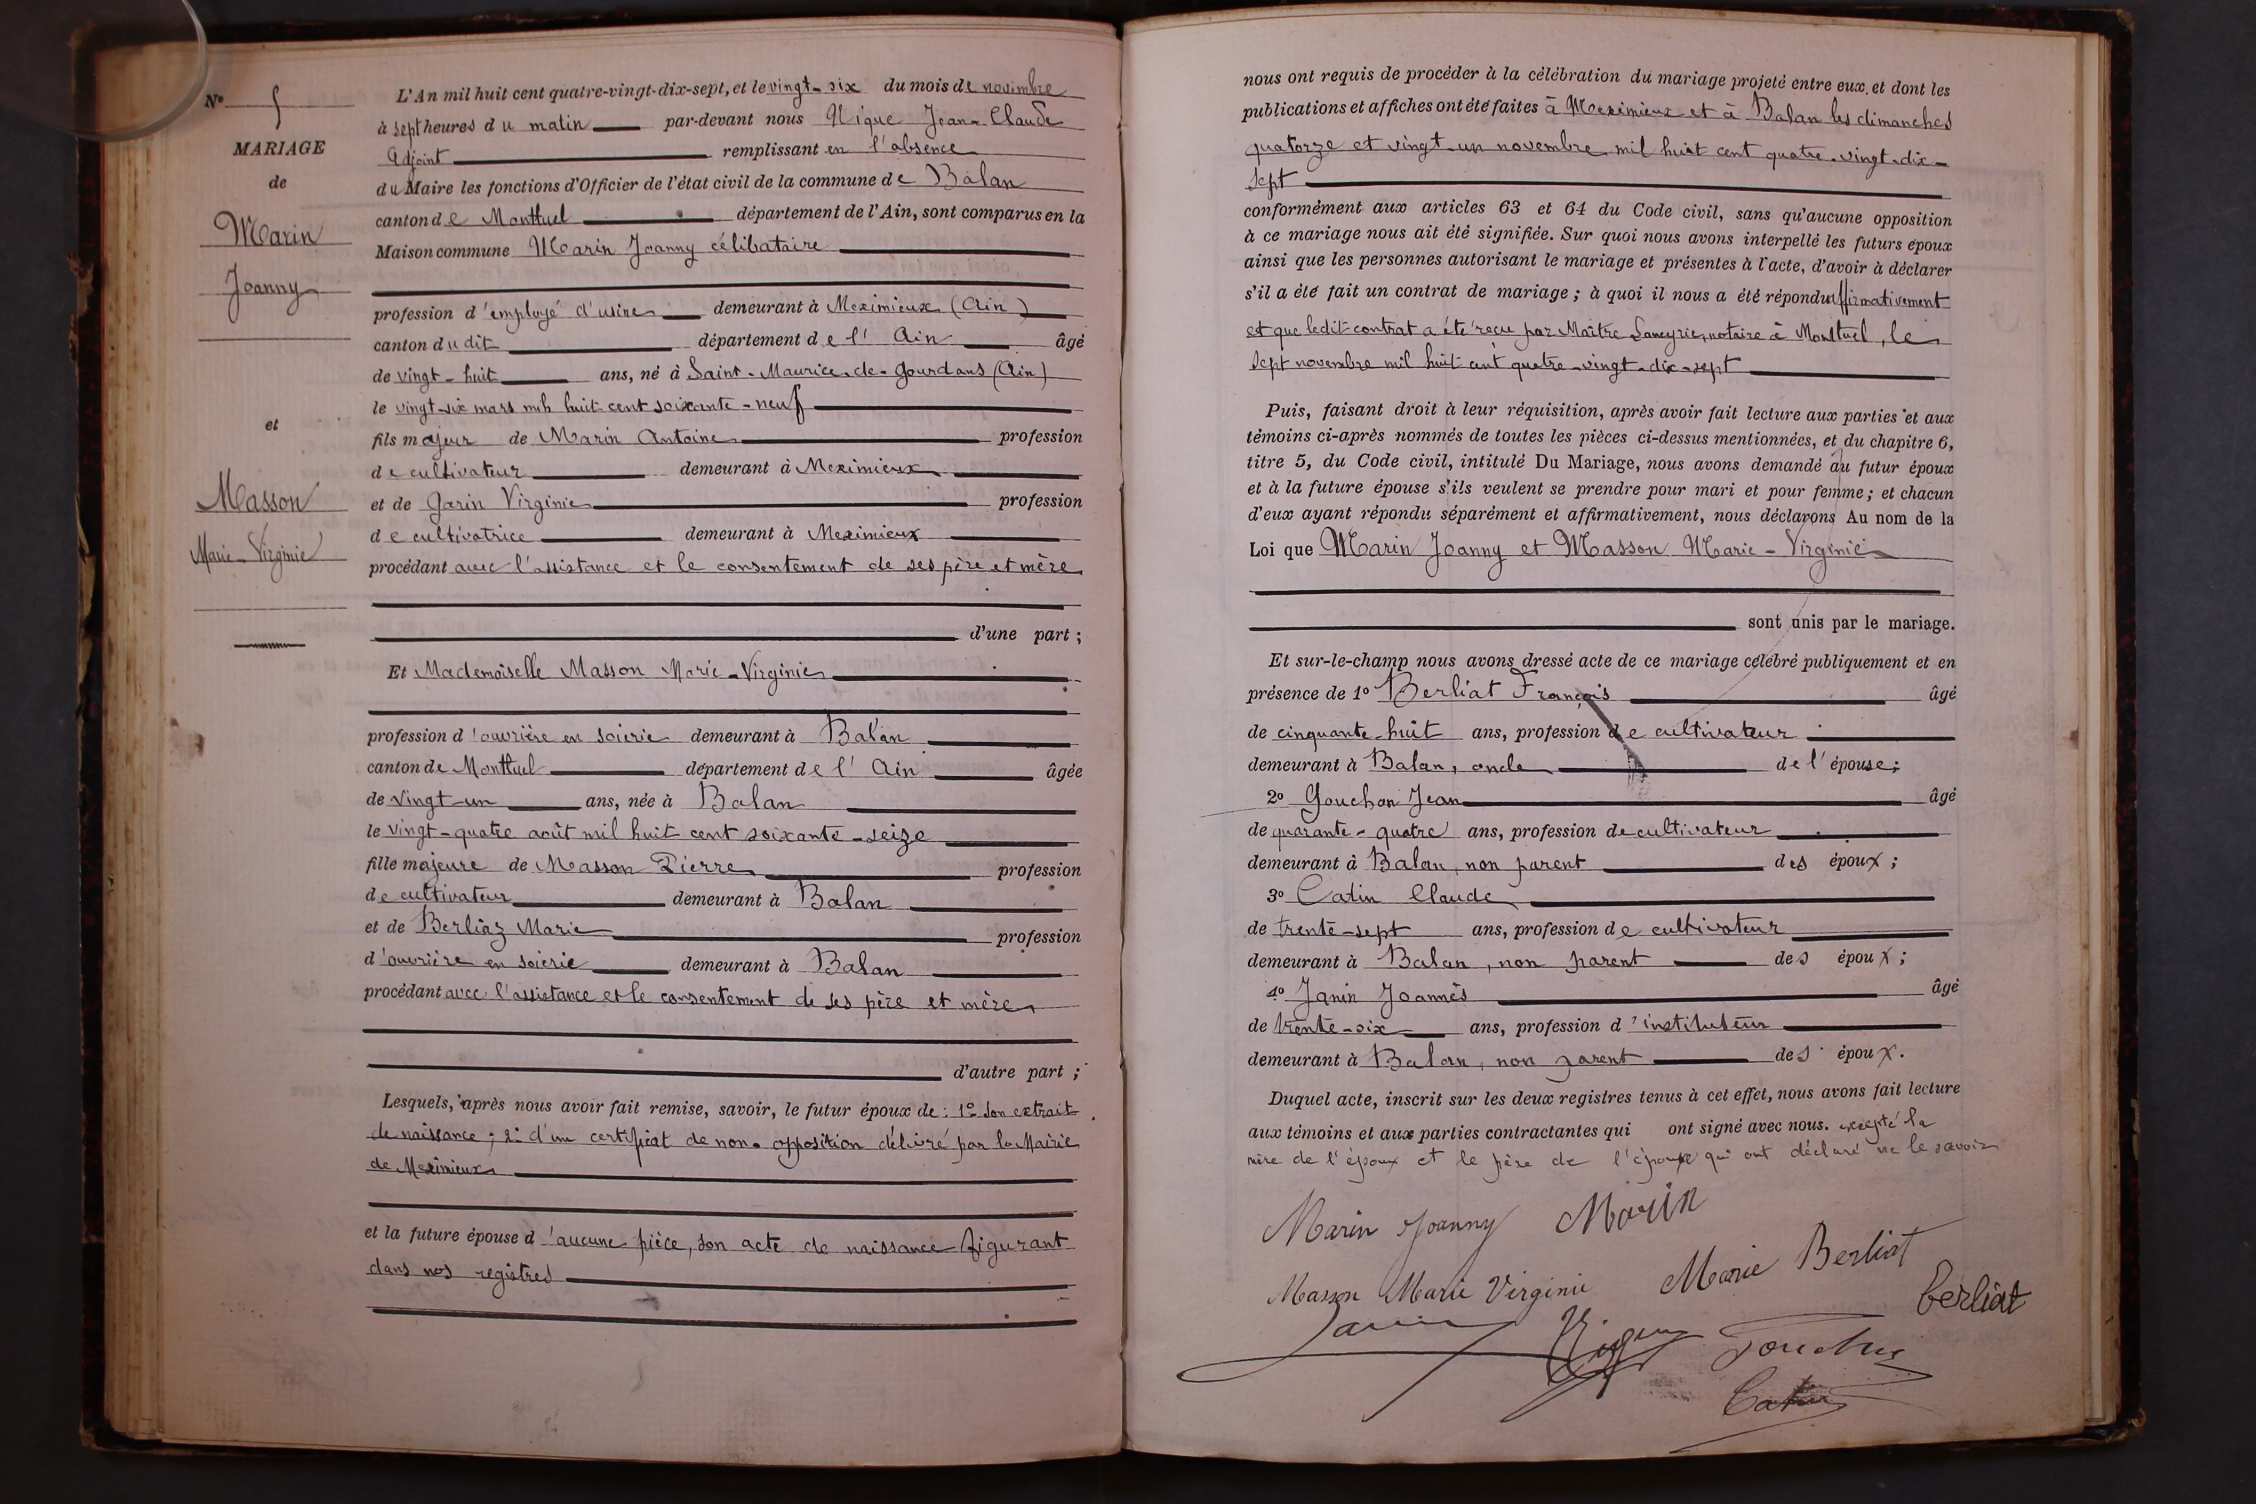 N° 5
MARIAGE
de
Marin
Joanny
et
Masson
Marie-Virginie
L'An mil huit cent quatre-vingt-dix-sept, et le vingt-six du mois de novembre
à sept heures du matin par-devant nous Nique Jean-Claude
Adjoint remplissant en l'absence
du Maire les fonctions d'Officier de l'état civil de la commune de Balan
canton de Montluel département de l'Ain, sont comparus en la
Maison commune Marin Joanny célibataire
profession d'employé d'usine demeurant à Meximieux (Ain)
canton dudit département de l'Ain âgé
de vingt-huit ans, né à Saint-Maurice-de-Gourdans (Ain)
le vingt-six mars mil huit cent soixante-neuf
fils majeur de Marin Antoine profession
de cultivateur demeurant à Meximieux
et de Garin Virginie profession
de cultivatrice demeurant à Meximieux
procédant avec l'assistance et le consentement de ses père et mère
d'une part ;
Et Mademoiselle Masson Marie-Virginie
profession d'ouvrière en soierie demeurant à Balan
canton de Montluel département de l'Ain âgée
de vingt-un ans, née à Balan
le vingt-quatre août mil huit cent soixante-seize
fille majeure de Masson Pierre profession
de cultivateur demeurant à Balan
et de Berliaz Marie profession
d'ouvrière en soierie demeurant à Balan
procédant avec l'assistance et le consentement de ses père et mère
d'autre part ;
Lesquels, après nous avoir fait remise, savoir, le futur époux de : 1° son extrait
de naissance ; 2° d'un certificat de non-opposition délivré par la Mairie
de Meximieux
et la future épouse d'aucune pièce, son acte de naissance figurant
dans nos registres
nous ont requis de procéder à la célébration du mariage projeté entre eux, et dont les
publications et affiches ont été faites à Meximieux et à Balan les dimanches
quatorze et vingt-un novembre mil huit cent quatre-vingt-dix-
sept
conformément aux articles 63 et 64 du Code civil, sans qu'aucune opposition
à ce mariage nous ait été signifiée. Sur quoi nous avons interpellé les futurs époux
ainsi que les personnes autorisant le mariage et présentes à l'acte, d'avoir à déclarer
s'il a été fait un contrat de mariage ; à quoi il nous a été répondu affirmativement
et que ledit contrat a été reçu par Maître notaire à Montluel, le
sept novembre mil huit cent quatre-vingt-dix-sept
Puis, faisant droit à leur réquisition, après avoir fait lecture aux parties et aux
témoins ci-après nommés de toutes les pièces ci-dessus mentionnées, et du chapitre 6,
titre 5, du Code civil, intitulé Du Mariage, nous avons demandé au futur époux
et à la future épouse s'ils veulent se prendre pour mari et pour femme ; et chacun
d'eux ayant répondu séparément et affirmativement, nous déclarons Au nom de la
Loi que Marin Joanny et Masson Marie-Virginie
sont unis par le mariage.
Et sur-le-champ nous avons dressé acte de ce mariage célébré publiquement et en
présence de 1° Berliat François âgé
de cinquante-huit ans, profession de cultivateur
demeurant à Balan, oncle de l'épouse ;
2° Gouchon Jean âgé
de quarante-quatre ans, profession de cultivateur
demeurant à Balan, non parent des époux ;
3° Catin Claude
de trente-sept ans, profession de cultivateur
demeurant à Balan, non parent des époux ;
4° Janin Joannès âgé
de trente-six ans, profession d'instituteur
demeurant à Balan, non parent des époux.
Duquel acte, inscrit sur les deux registres tenus à cet effet, nous avons fait lecture
aux témoins et aux parties contractantes qui ont signé avec nous. excepté la
mère de l'époux et le père de l'épouse qui ont déclaré ne le savoir
Marin Joanny Marin
Masson Marie Virginie Marie Berliat
berliat
Janin Nique Gouchon
Catin